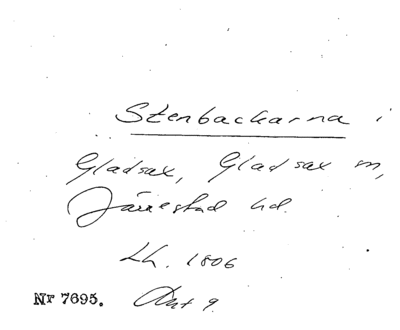 Stenbackarna i
Gladsax, Gladsax sn,
Järrestad hd.
Lh. 1806
Nr 7695. Akt 9.